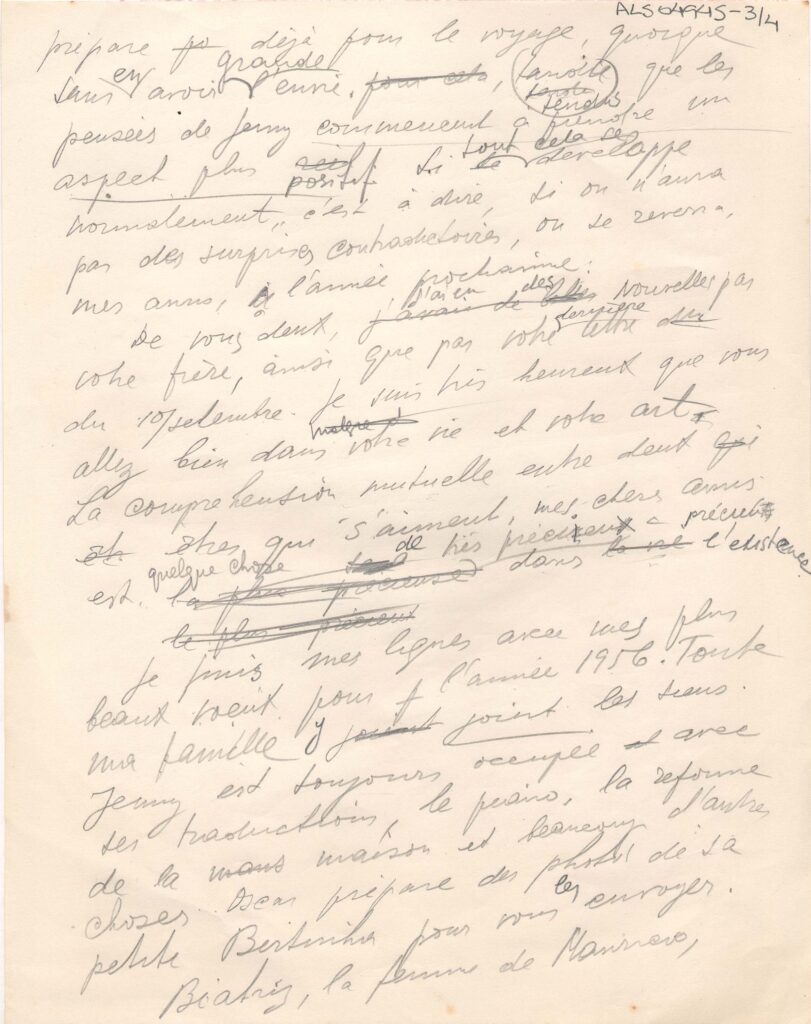 ALS04945-3/4
prépare po déjà pour le voyage, quoique
sans en avoir grande l'envie. pour cela, tandis que les
pensées de Jenny commencent à prendre un
aspect plus positif. Si tout cela se developpe
normalement, c'est à dire, si on n'aura
pas des surprises contradictoires, on se reverra,
mes amis, à l'année prochaine.
De vous deux, j'ai eu des nouvelles pas
votre frère, ainsi que pas votre dernière lettre du
du 10/setembre. Je suis très heureux que vous
allez bien dans votre vie et votre art.
La compréhension mutuelle entre deux qui
êt. êtres qui s'aiment, mes chers amis
est quelque chose de très précieux précieux
la plus précieuse dans la vie l'existence.
le plus précieux
Je finis mes lignes avec mes plus
beaux voeux pour l'année 1956. Toute
ma famille y joint les siens.
Jenny est toujours occupée et avec
ses traductions, le piano, la reforme
de la mais maison et beaucoup d'autres
choses. Oscar prépare des photos de sa
petite Bertinha pour vous les envoyer.
Biatriz, la femme de